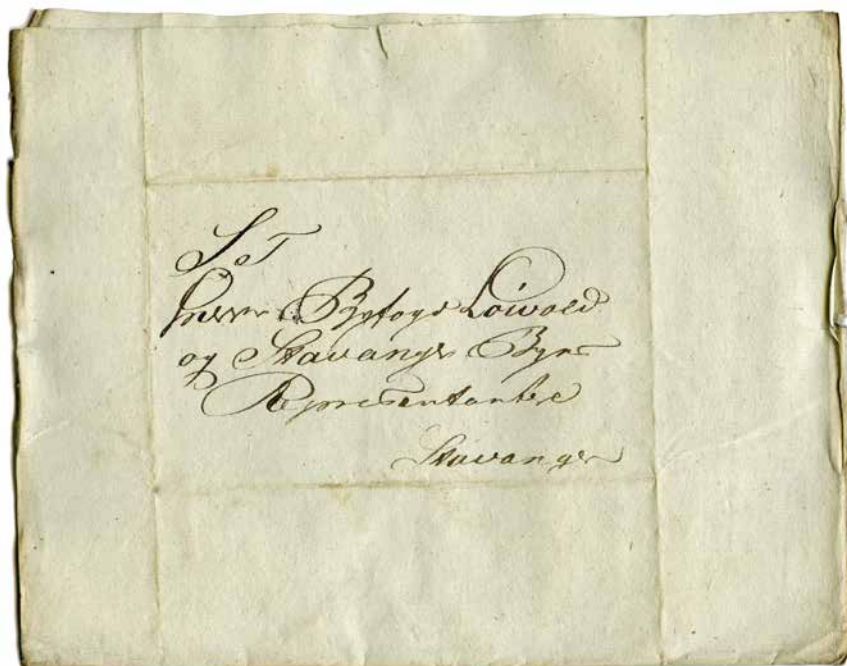 S T
Herr Byfogd Löwold
og Stavanger Byes
Representantere
Stavanger